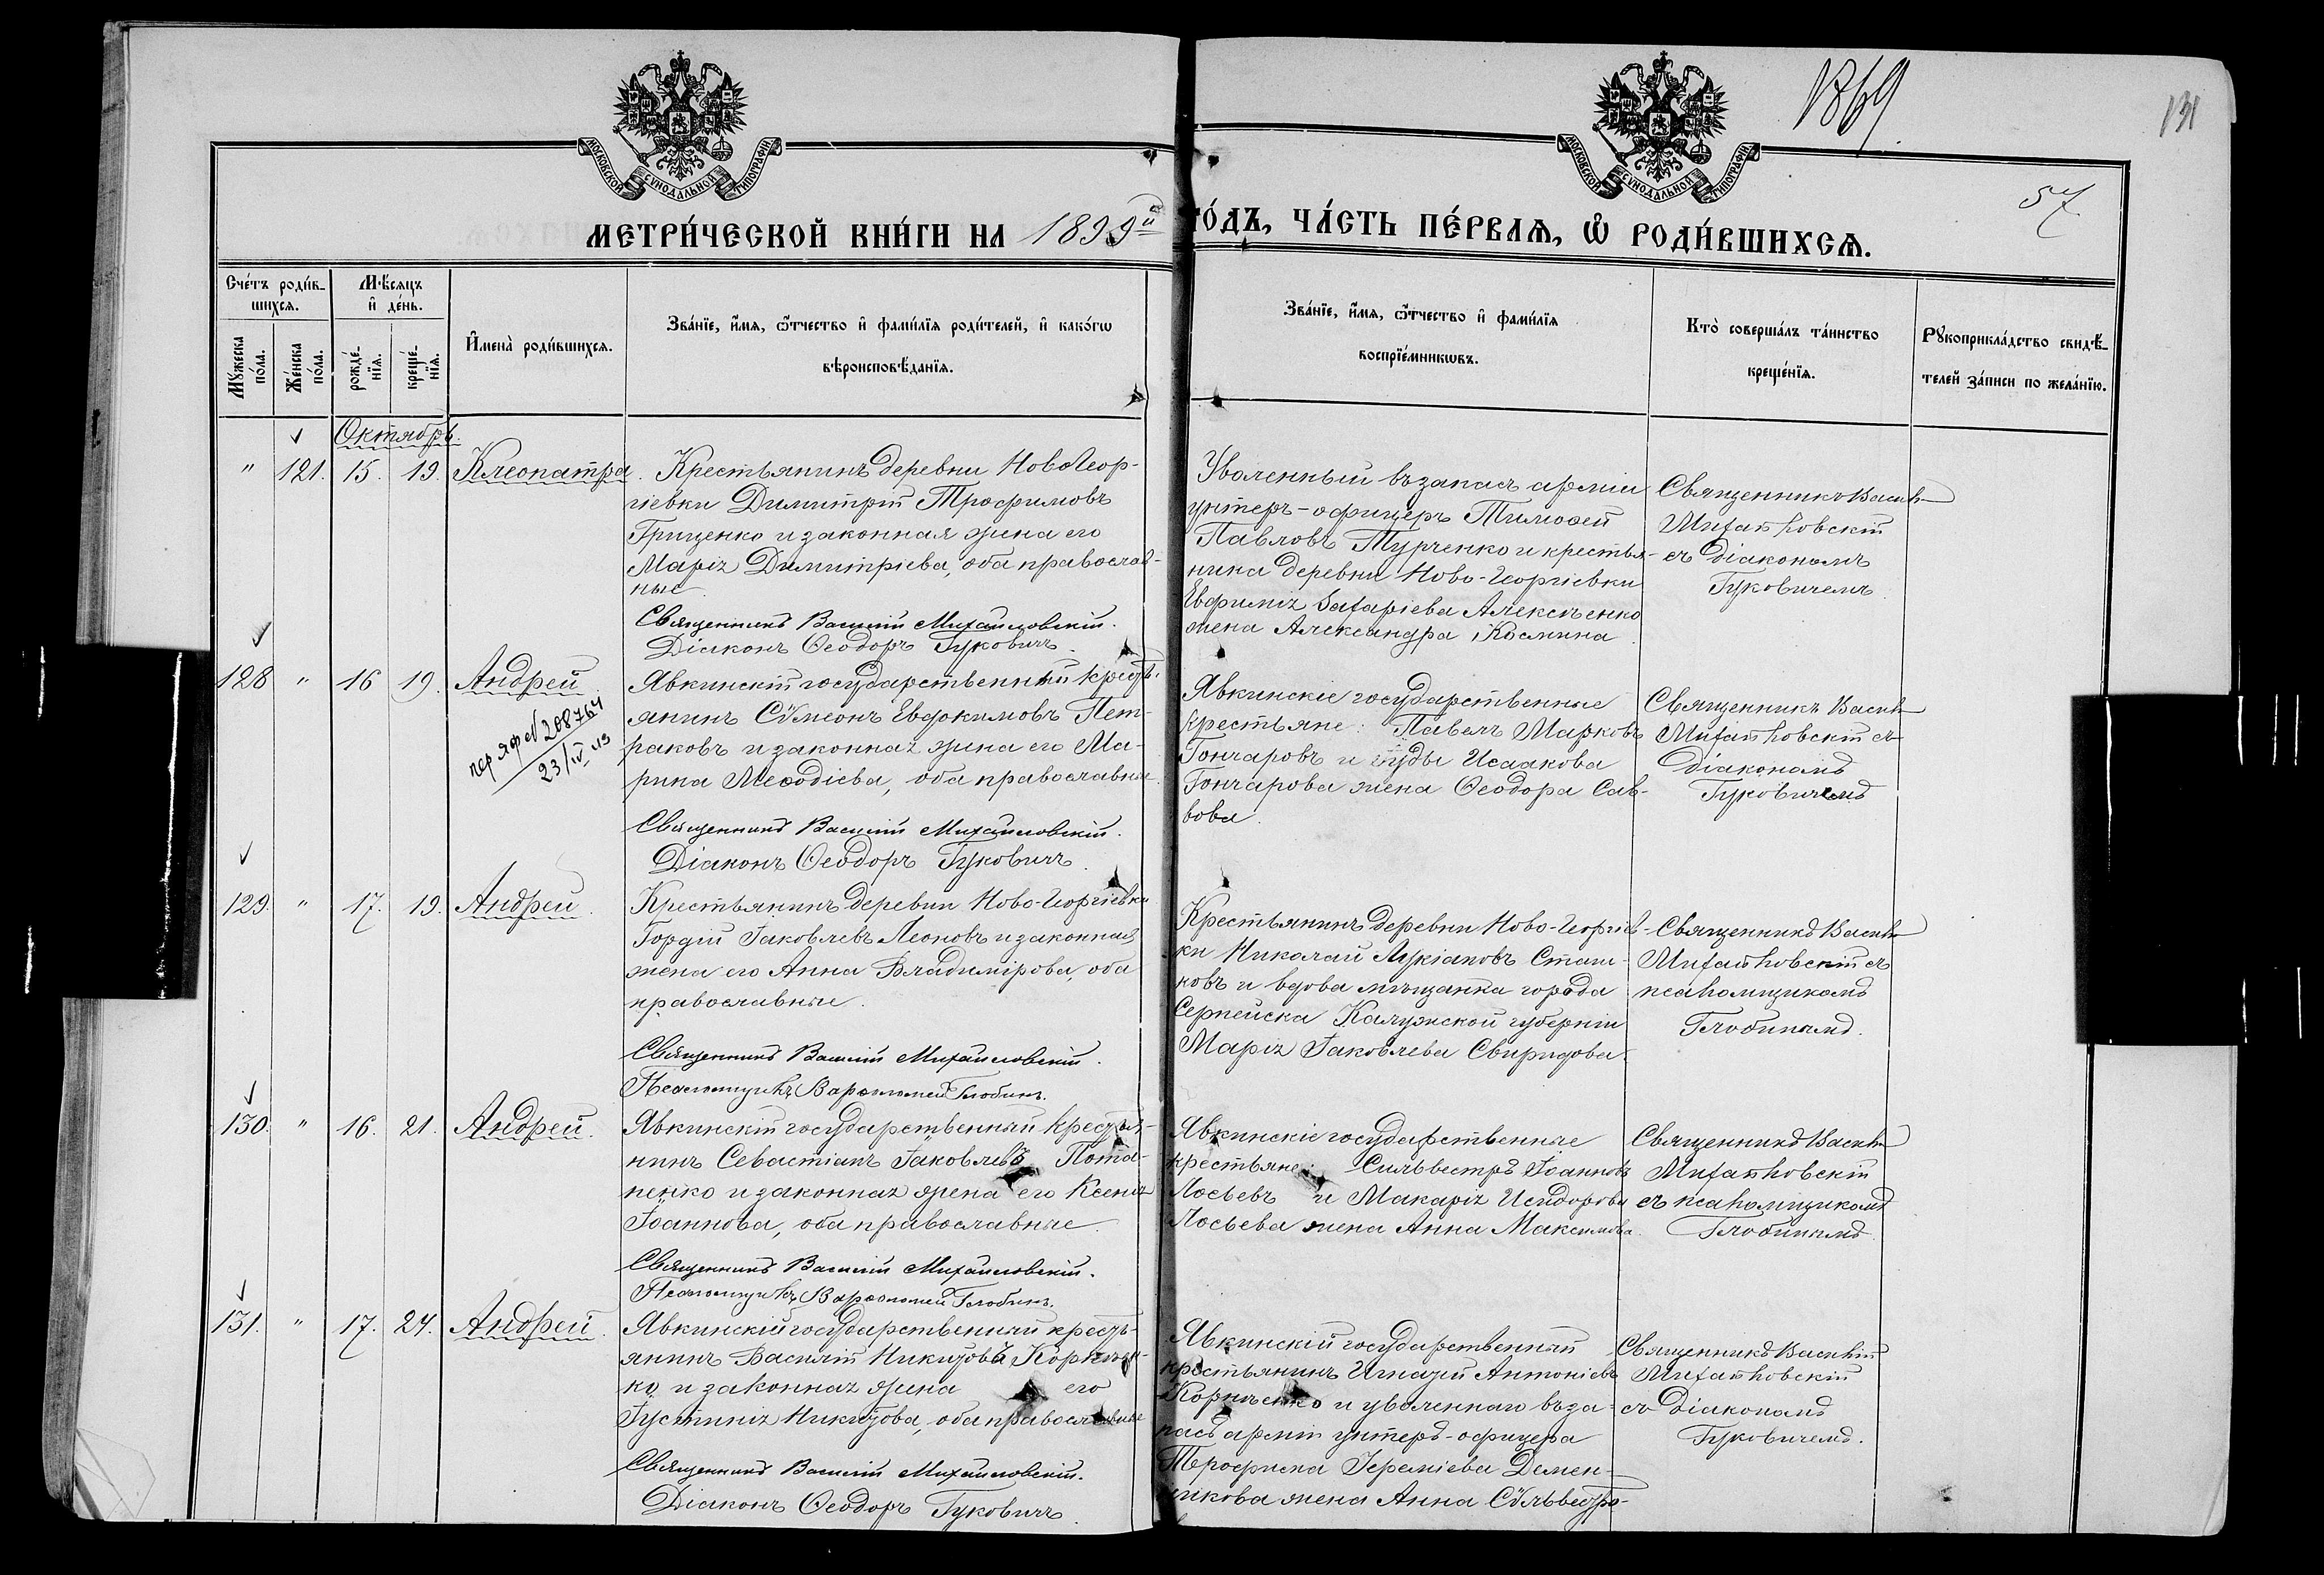 МОСКОВСКОЙ СѴНОДАЛЬНОЙ ТИПОГРАФІИ
МОСКОВСКОЙ СѴНОДАЛЬНОЙ ТИПОГРАФІИ
1869
131
57
МЕТРИ́ЧЕСКОЙ КНИ́ГИ НА 1899й ГО́ДЪ, ЧА́СТЬ ПЕ́РВАѦ, Ѡ҆ РОДИ́ВШИХСѦ.
Сче́тъ роди́в-
шихся.
Мѣ́сяцъ
и҆ де́нь.
Мꙋ́жеска по́ла.
Же́нска по́ла.
рожде́-
нїя.
креще́-
нїя.
И҆мена̀ роди́вшихся.
Зва́нїе, и҆́мя, ѻ҆́тчество и҆ фами́лїя роди́телей, и҆ како́гѡ
вѣроисповѣ́данїя.
Зва́нїе, и҆́мя, ѻ҆́тчество и҆ фами́лїя
воспрїе́мникѡвъ.
Кто̀ соверша́лъ та́инство
креще́нїя.
Рꙋкоприкла́дство свидѣ́-
телей за́писи по жела́нїю.
Октябрь.
" 121. 15. 19. Клеопатра.
Крестьянинъ деревни НовоГеор-
гіевки Димитрій Трофимовъ
Гриценко и законная жена его
Марія Димитріева, оба православ-
ные.
Священникъ Василій Михайловскій.
Діаконъ Ѳеодоръ Гуковичъ.
Уволенный въ запасъ арміи
унтеръ-офицеръ Тимоѳей
Павловъ Турченко и крестья-
нина деревни Ново-Георгіевки
Евфимія Захаріева Алексѣенко
жена Александра Космина.
Священникъ Василій
Михайловскій
съ діакономъ
Гуковичемъ.
128 " 16 19. Андрей
пер яф № 208764
23/IV 43
Явкинскій государственный кресть-
янинъ Сѵмеонъ Евдокимовъ Пет-
раковъ и законная жена его Ма-
рина Меѳодіева, оба православные.
Священникъ Василій Михайловскій.
Діаконъ Ѳеодоръ Гуковичъ.
Явкинскіе государственные
крестьяне: Павелъ Марковъ
Гончаровъ и Іуды Исаакова
Гончарова жена Ѳеодора Сав-
вова.
Священникъ Василій
Михайловскій съ
діакономъ
Гуковичемъ
129. " 17. 19. Андрей.
Крестьянинъ деревни Ново-Георгіевки
Гордій Іаковлевъ Леоновъ и законная
жена его Анна Владимірова, оба
православные.
Священникъ Василій Михайловскій.
Псаломщикъ Варѳоломей Глобинъ.
Крестьянинъ деревни Ново-Георгіев-
ки Николай Лукіановъ Сташ-
ковъ и вдова мѣщанка города
Серпейска Калужской губерніи
Марія Іаковлева Свиридова.
Священникъ Василій
Михайловскій съ
псаломщикомъ
Глобинымъ.
130. " 16. 21. Андрей.
Явкинскій государственный крестья-
нинъ Севастіанъ Іаковлевъ Пота-
пенко и законная жена его Ксенія
Іоаннова, оба православные.
Священникъ Василій Михайловскій.
Псаломщикъ Варѳоломей Глобинъ.
Явкинскіе государственные
крестьяне: Сильвестръ Іоанновъ
Лосьевъ и Макарія Исидорова
Лосьева жена Анна Максимова.
Священникъ Василій
Михайловскій
съ псаломщикомъ
Глобинымъ
131. " 17. 24. Андрей.
Явкинскій государственный кресть-
янинъ Василій Никитовъ Корнѣен-
ко и законная жена его
Іустинія Никитова, оба православные
Священникъ Василій Михайловскій.
Діаконъ Ѳеодоръ Гуковичъ.
Явкинскій государственный
крестьянинъ Игнатій Антоніевъ
Корнѣенко и уволеннаго въ за-
пасъ арміи унтеръ-офицера
Трофима Іереміева Демен-
тікова жена Анна Сѵльвестро-
Священникъ Василій
Михайловскій
съ діакономъ
Гуковичемъ.